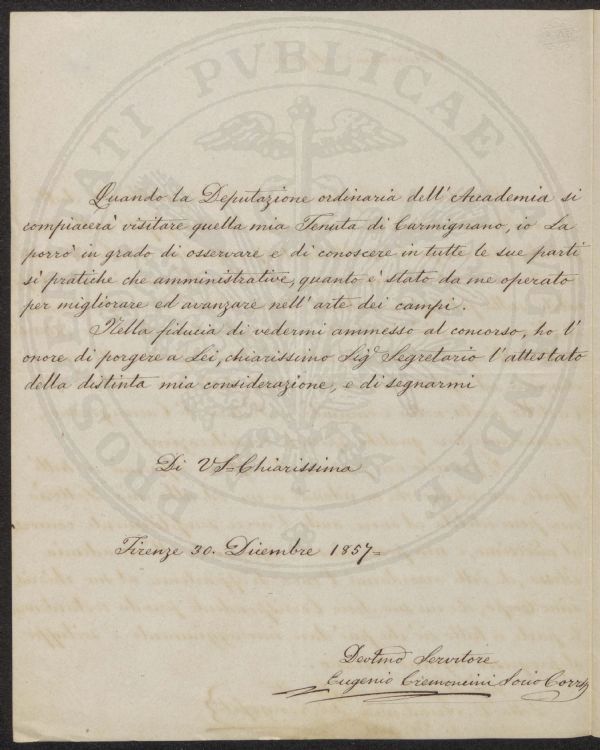 PROSPERITATI PVBLICAE AVGENDAE
Quando la Deputazione ordinaria dell' Accademia si
compiacerà visitare quella mia Tenuta di Carmignano, io La
porrò in grado di osservare e di conoscere in tutte le sue parti
sì pratiche che amministrative, quanto è stato da me operato
per migliorare ed avanzare nell' arte dei campi.
Nella fiducia di vedermi ammesso al concorso, ho l'
onore di porgere a Lei, chiarissimo Sig.e Segretario l'attestato
della distinta mia considerazione, e di segnarmi
Di VS= Chiarissima
Firenze 30. Dicembre 1857=
Devotmo Servitore
Eugenio Cremoncini Socio Corr